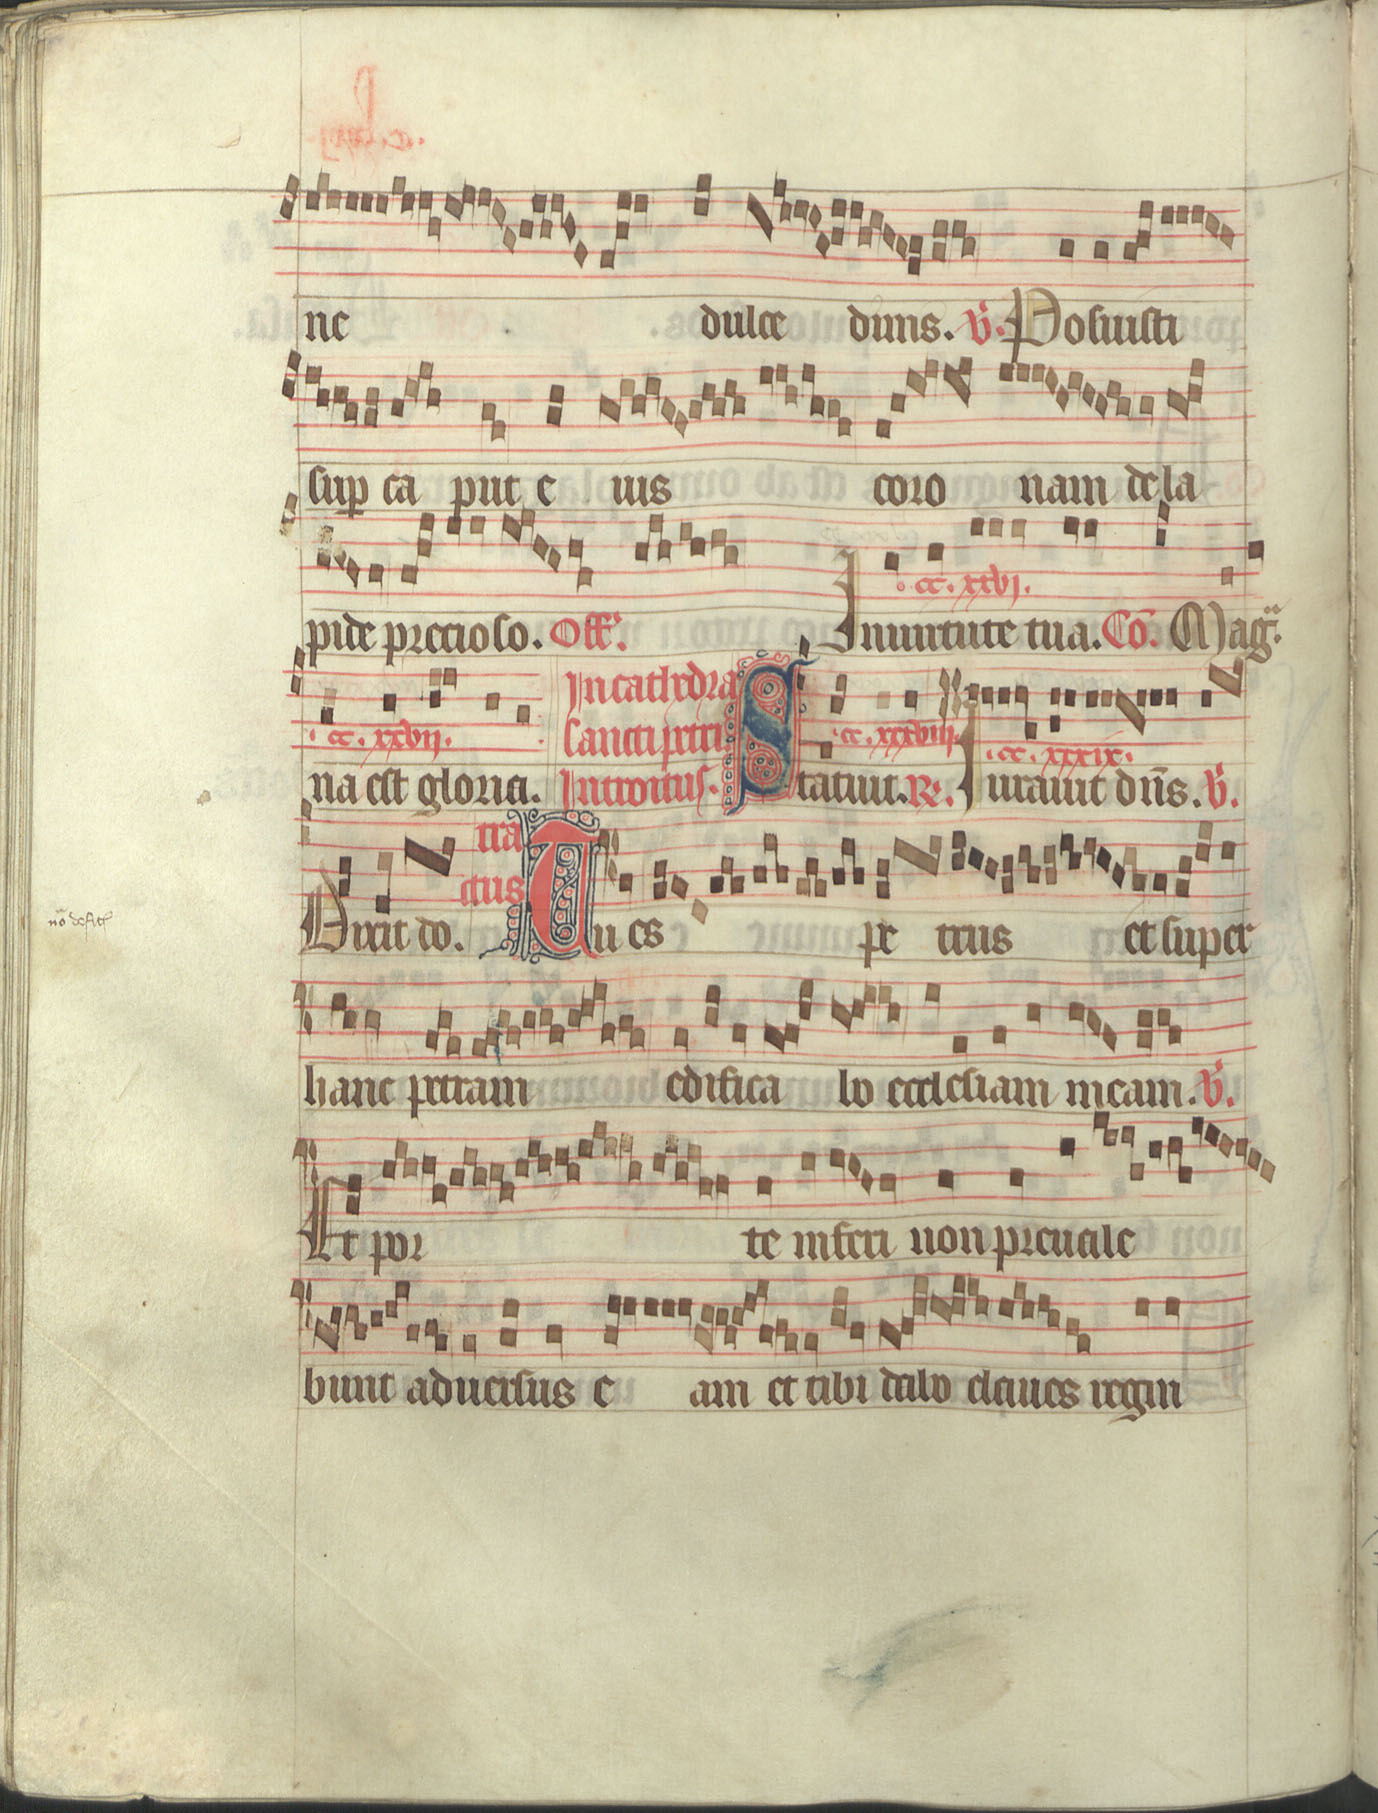 ne dulce dinis. V. Posuisti
sup ca put e ius coro nam de la
.cc.xxvj.
pide precioso. Off. In uirtute tua. Co. Mag
In cathedra
.cc.xxvij. sancti petri .cc.xxxviij. .cc.xxxix.
na est gloria. Introitus. Statuit. R. Iurauit dns. V.
tra
ctus
Dixit do. Tu es pe trus et super
hanc petram edifica bo ecclesiam meam. V.
Et por te inferi non preuale
bunt aduersus e am et tibi dabo claues regni